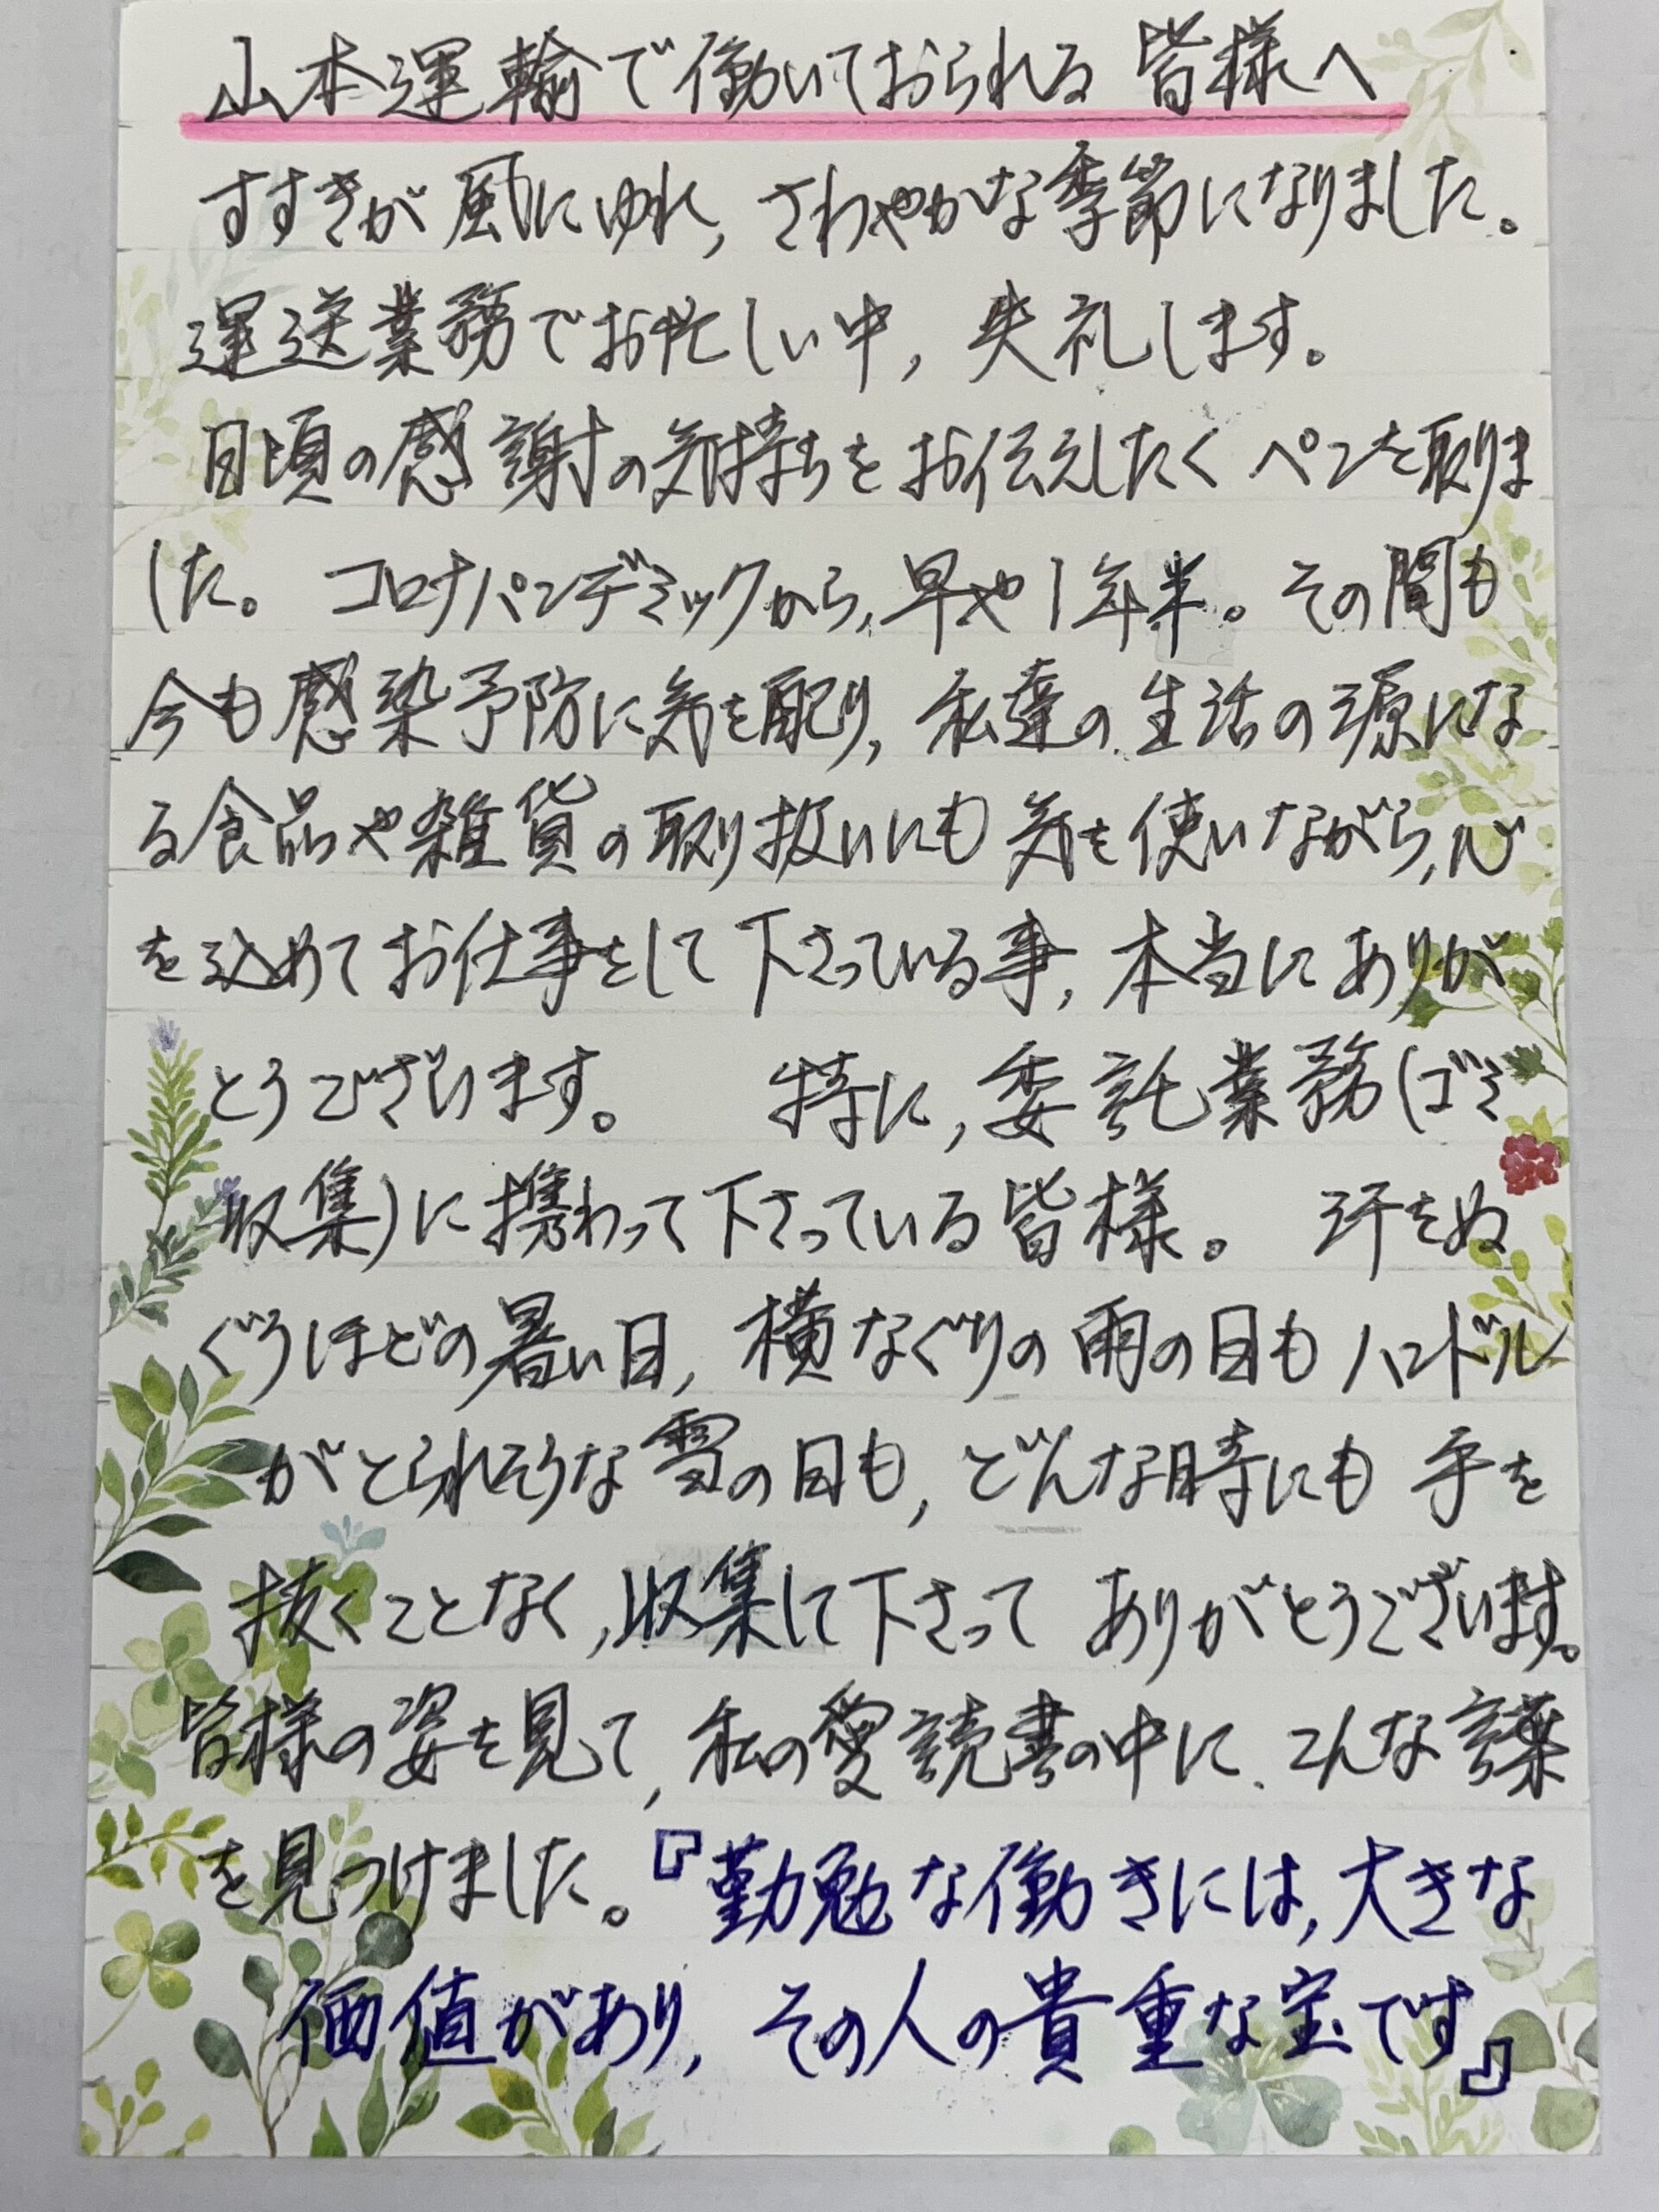 山本運輸で働いておられる 皆様へ
すすきが風にゆれ, さわやかな季節になりました。
運送業務でお忙しい中, 失礼します。
日頃の感謝の気持ちをお伝えしたく ペンを取りま
した。 コロナパンデミックから, 早や1年半。 その間も
今も感染予防に気を配り, 私達の生活の源にな
る食品や雑貨の取り扱いにも気を使いながら, 心
を込めてお仕事をして下さっている事, 本当にありが
とうございます。 特に, 委託業務(ゴミ
収集)に携わって下さっている皆様。 汗をぬ
ぐうほどの暑い日, 横なぐりの雨の日も ハンドル
がとられそうな雪の日も, どんな時にも 手を
抜くことなく, 収集して下さって ありがとうございます。
皆様の姿を見て, 私の愛読書の中に、こんな言葉
を見つけました。『勤勉な働きには, 大きな
価値があり, その人の貴重な宝です』